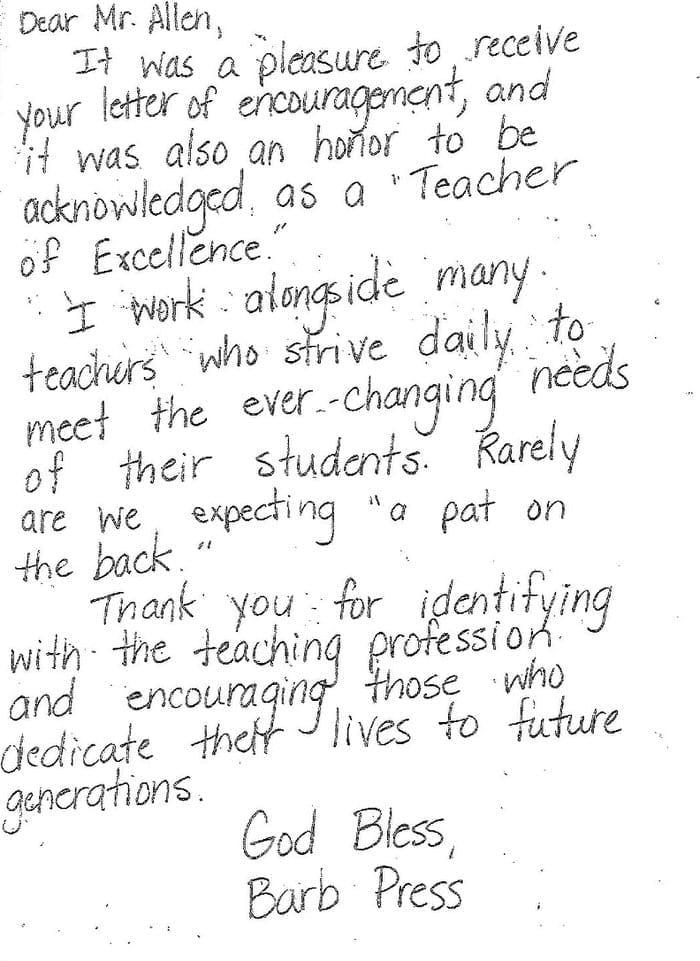 Dear Mr. Allen,
It was a pleasure to receive
your letter of encouragement, and
it was also an honor to be
acknowledged as a "Teacher
of Excellence."
I work alongside many
teachers who strive daily to
meet the ever-changing needs
of their students. Rarely
are we expecting "a pat on
the back."
Thank you for identifying
with the teaching profession
and encouraging those who
dedicate their lives to future
generations.
God Bless,
Barb Press